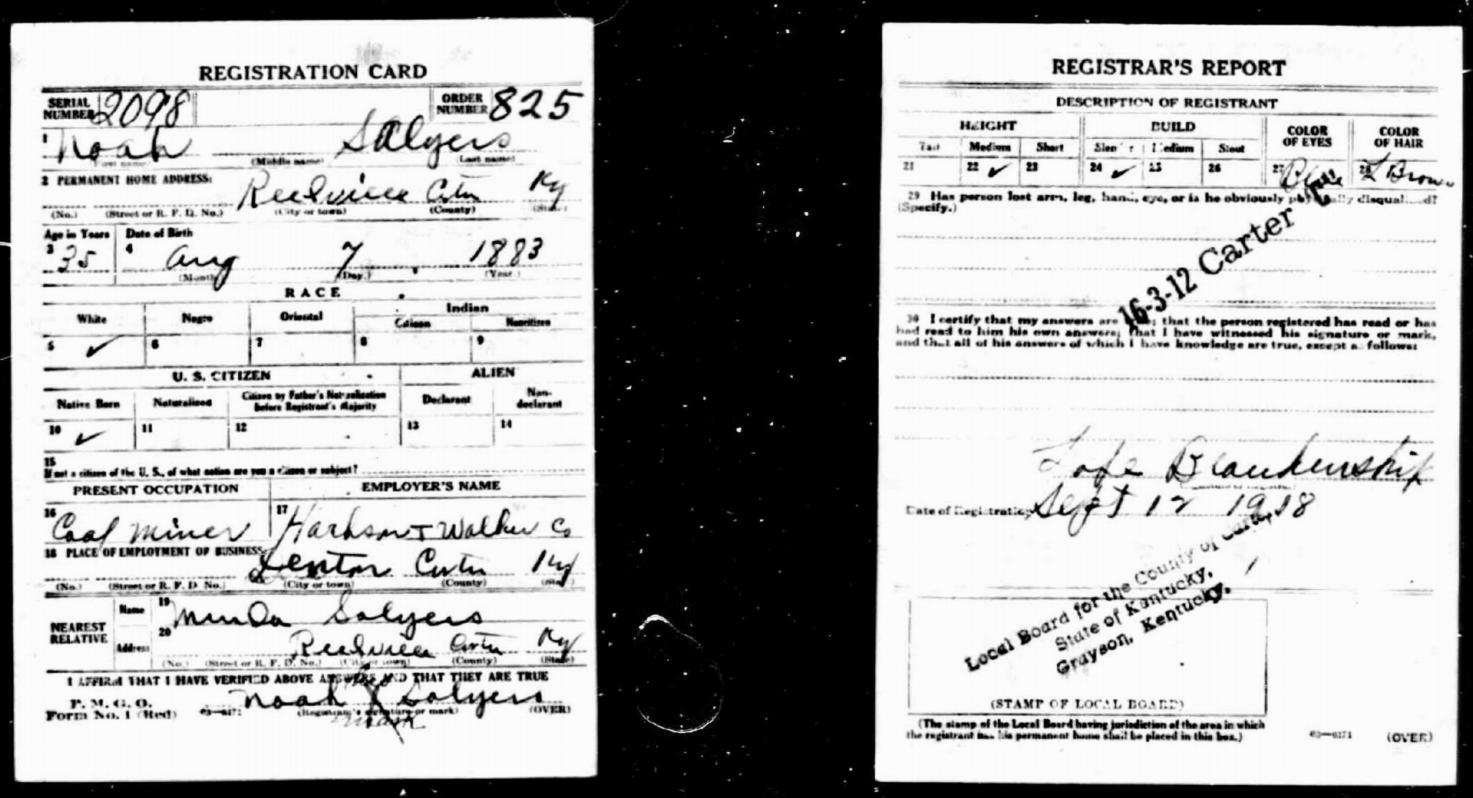 REGISTRATION CARD
SERIAL NUMBER 2098 ORDER NUMBER 825
1 Noah Salyers
(First name) (Middle name) (Last name)
2 PERMANENT HOME ADDRESS:
Ky
(No.) (Street or R. F. D. No.) (City or town) (County) (State)
Age in Years Date of Birth
3 35 4 Aug 7 1883
(Month) (Day) (Year)
RACE
White Negro Oriental Indian
Citizen Noncitizen
5 ✓ 6 7 8 9
U. S. CITIZEN ALIEN
Native Born Naturalized Citizen by Father's Naturalization before Registrant's Majority Declarant Non-declarant
10 ✓ 11 12 13 14
15
If not a citizen of the U. S., of what nation are you a citizen or subject?
PRESENT OCCUPATION EMPLOYER'S NAME
16 Coal Miner 17 Walker Co
18 PLACE OF EMPLOYMENT OR BUSINESS:
Denton Ky
(No.) (Street or R. F. D. No.) (City or town) (County) (State)
NEAREST RELATIVE
Name 19 Salyers
Address 20 Ky
(No.) (Street or R. F. D. No.) (City or town) (County) (State)
I AFFIRM THAT I HAVE VERIFIED ABOVE ANSWERS AND THAT THEY ARE TRUE
P. M. G. O.
Form No. 1 (Red) 03—6171 Noah X Salyers
(Registrant's signature or mark) (OVER)
mark
REGISTRAR'S REPORT
DESCRIPTION OF REGISTRANT
HEIGHT BUILD COLOR OF EYES COLOR OF HAIR
Tall Medium Short Slender Medium Stout
21 22 ✓ 23 24 ✓ 25 26 27 Blue 28 L Brown
29 Has person lost arm, leg, hand, eye, or is he obviously physically disqualified?
(Specify.)
16-3-12 Carter
30 I certify that my answers are true; that the person registered has read or has
had read to him his own answers; that I have witnessed his signature or mark,
and that all of his answers of which I have knowledge are true, except as follows:
Blankenship
Date of Registration Sept 12 1918
Local Board for the County of Carter,
State of Kentucky,
Grayson, Kentucky.
(STAMP OF LOCAL BOARD)
(The stamp of the Local Board having jurisdiction of the area in which
the registrant has his permanent home shall be placed in this box.)
03—6171 (OVER)